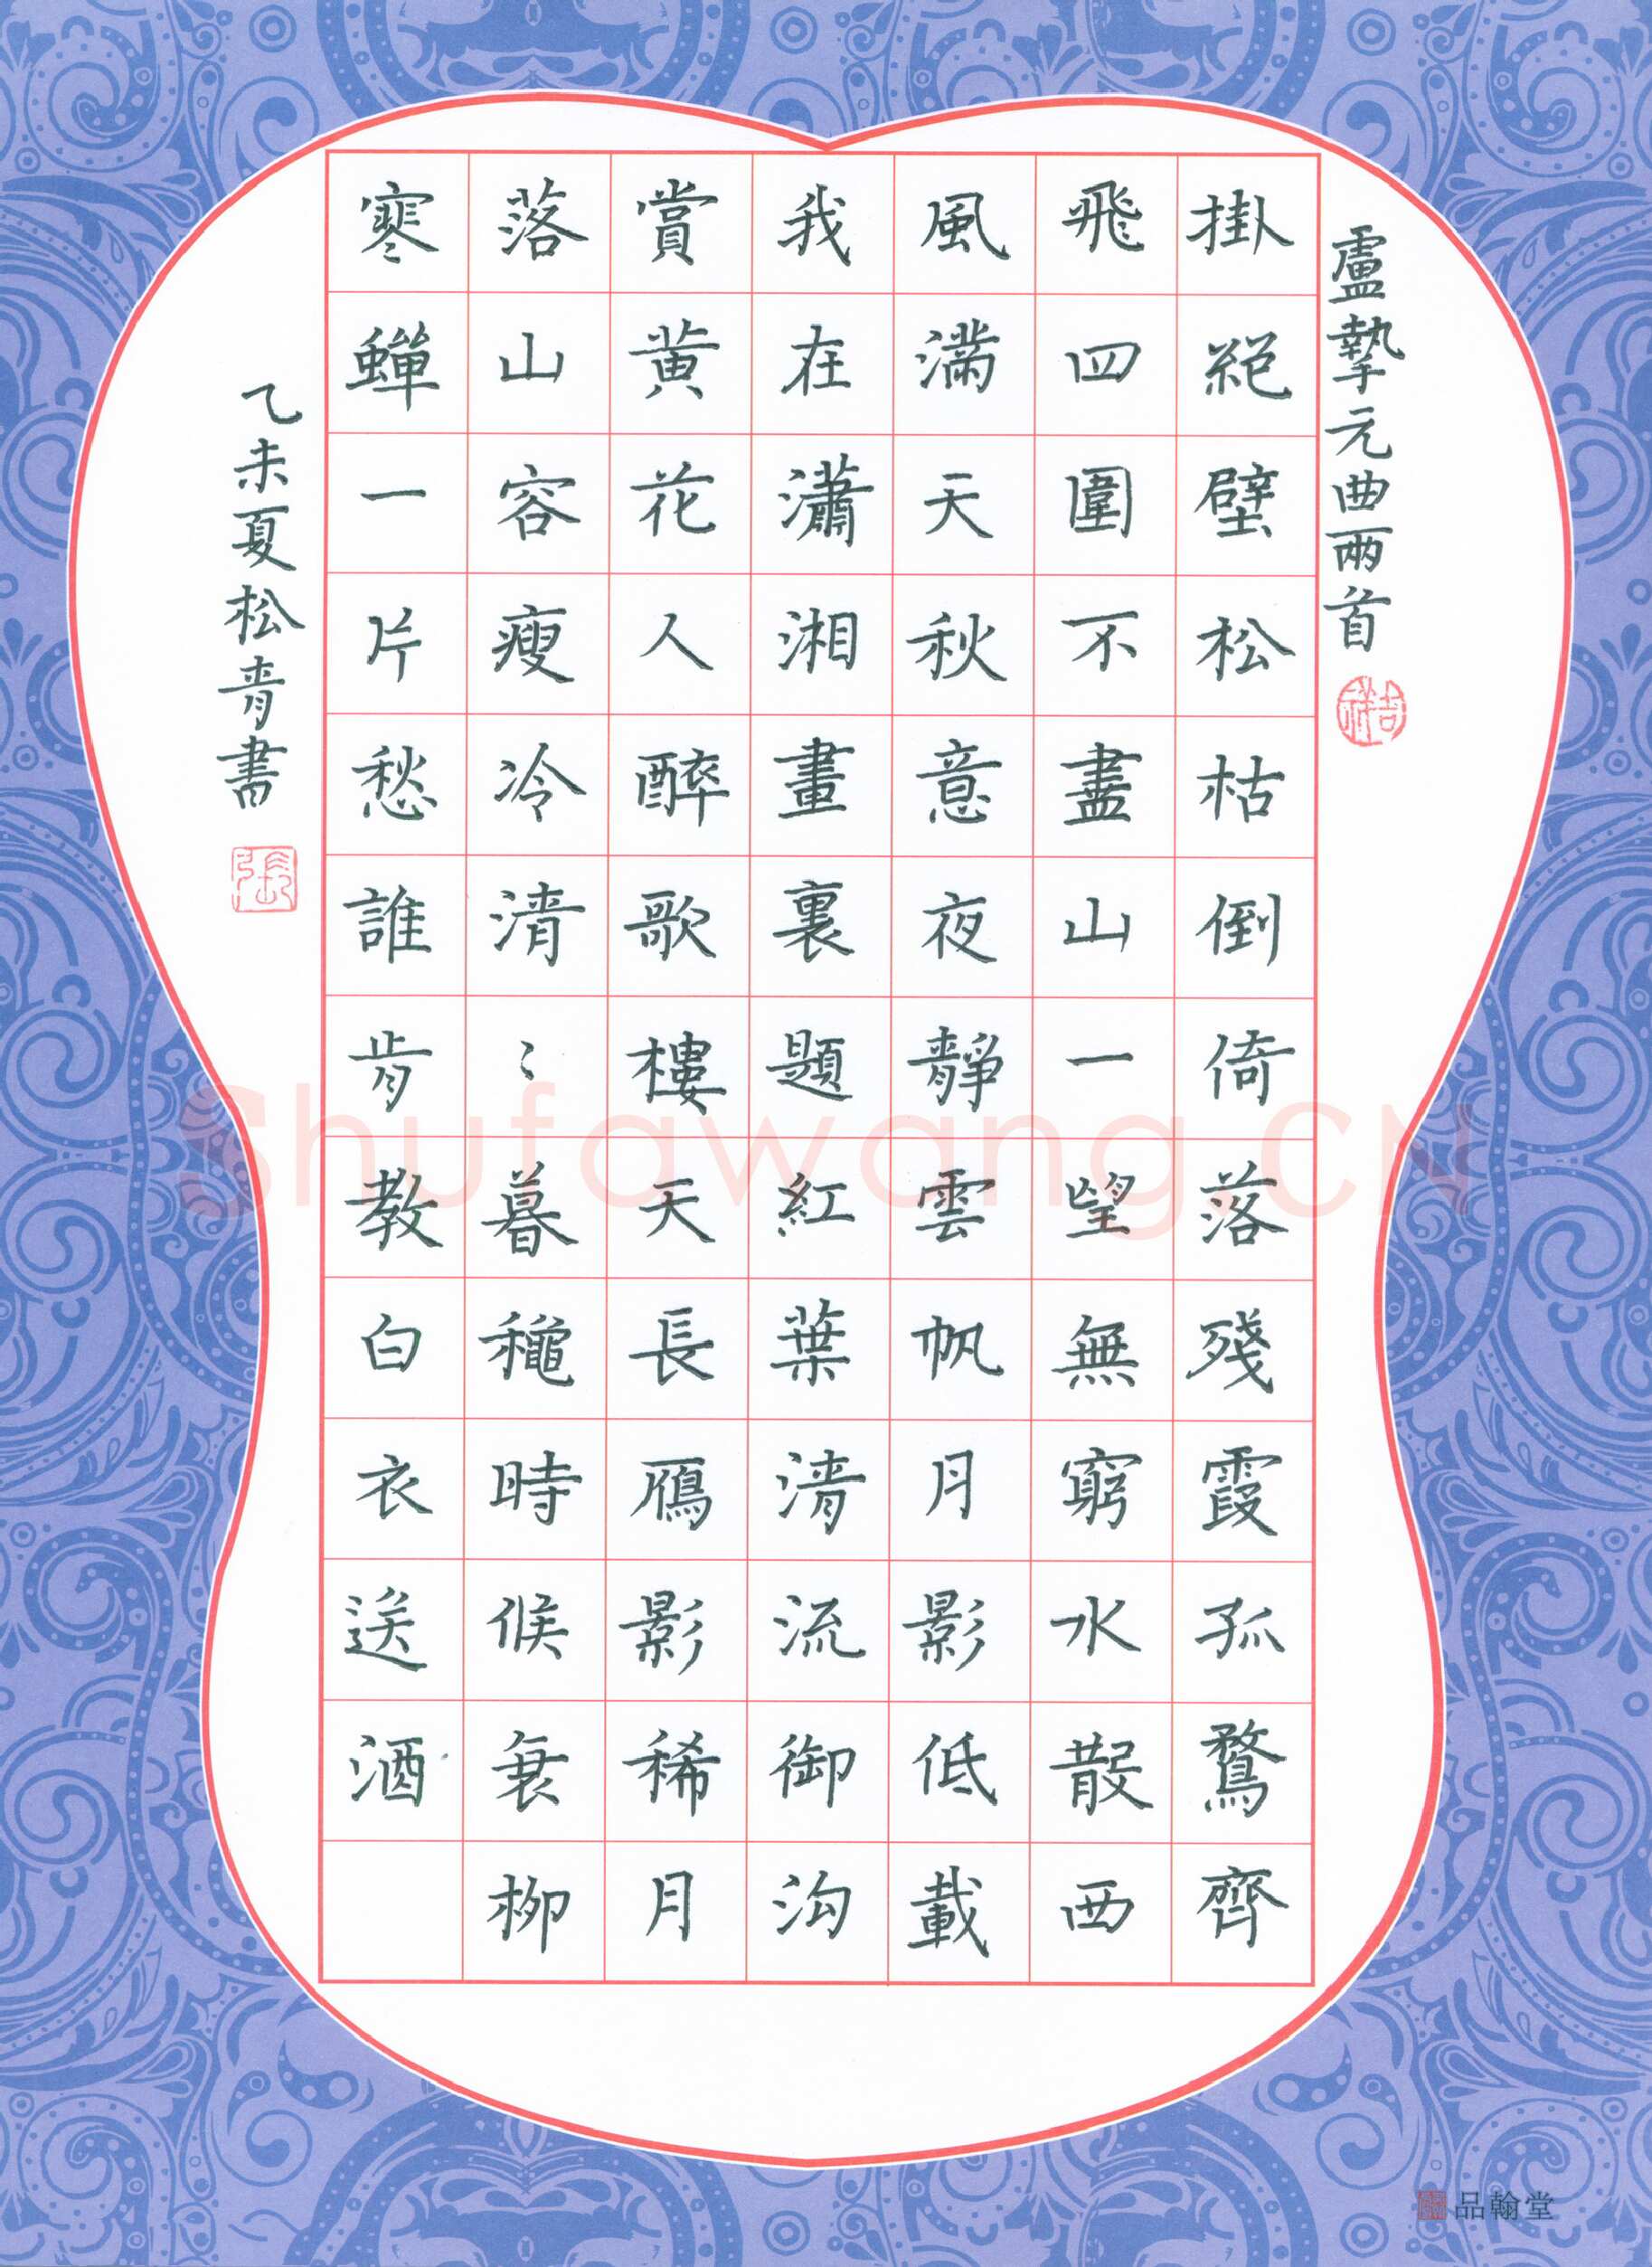 盧摯元曲兩首
掛絕壁松枯倒倚落殘霞孤鶩齊
飛四圍不盡山一望無窮水散西
風滿天秋意夜靜雲帆月影低載
我在瀟湘畫裏題紅葉清流御沟
賞黄花人醉歌樓天長鴈影稀月
落山容瘦冷清〻暮穐時候衰柳
寒蟬一片愁誰肯教白衣送酒
乙未夏松青書
張
Shufawang.CN
品翰堂